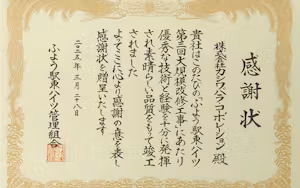 感謝状
株式会社カシワバラ・コーポレーション 殿
貴社はこのたびの「ふよう駅東ハイツ
第三回大規模改修工事」にあたり
優秀な技術と経験を十分に発揮
され素晴らしい品質をもって竣工
されました
よってここに心より感謝の意を表し
感謝状を贈呈いたします
二〇二五年 三月二十八日
ふよう駅東ハイツ管理組合